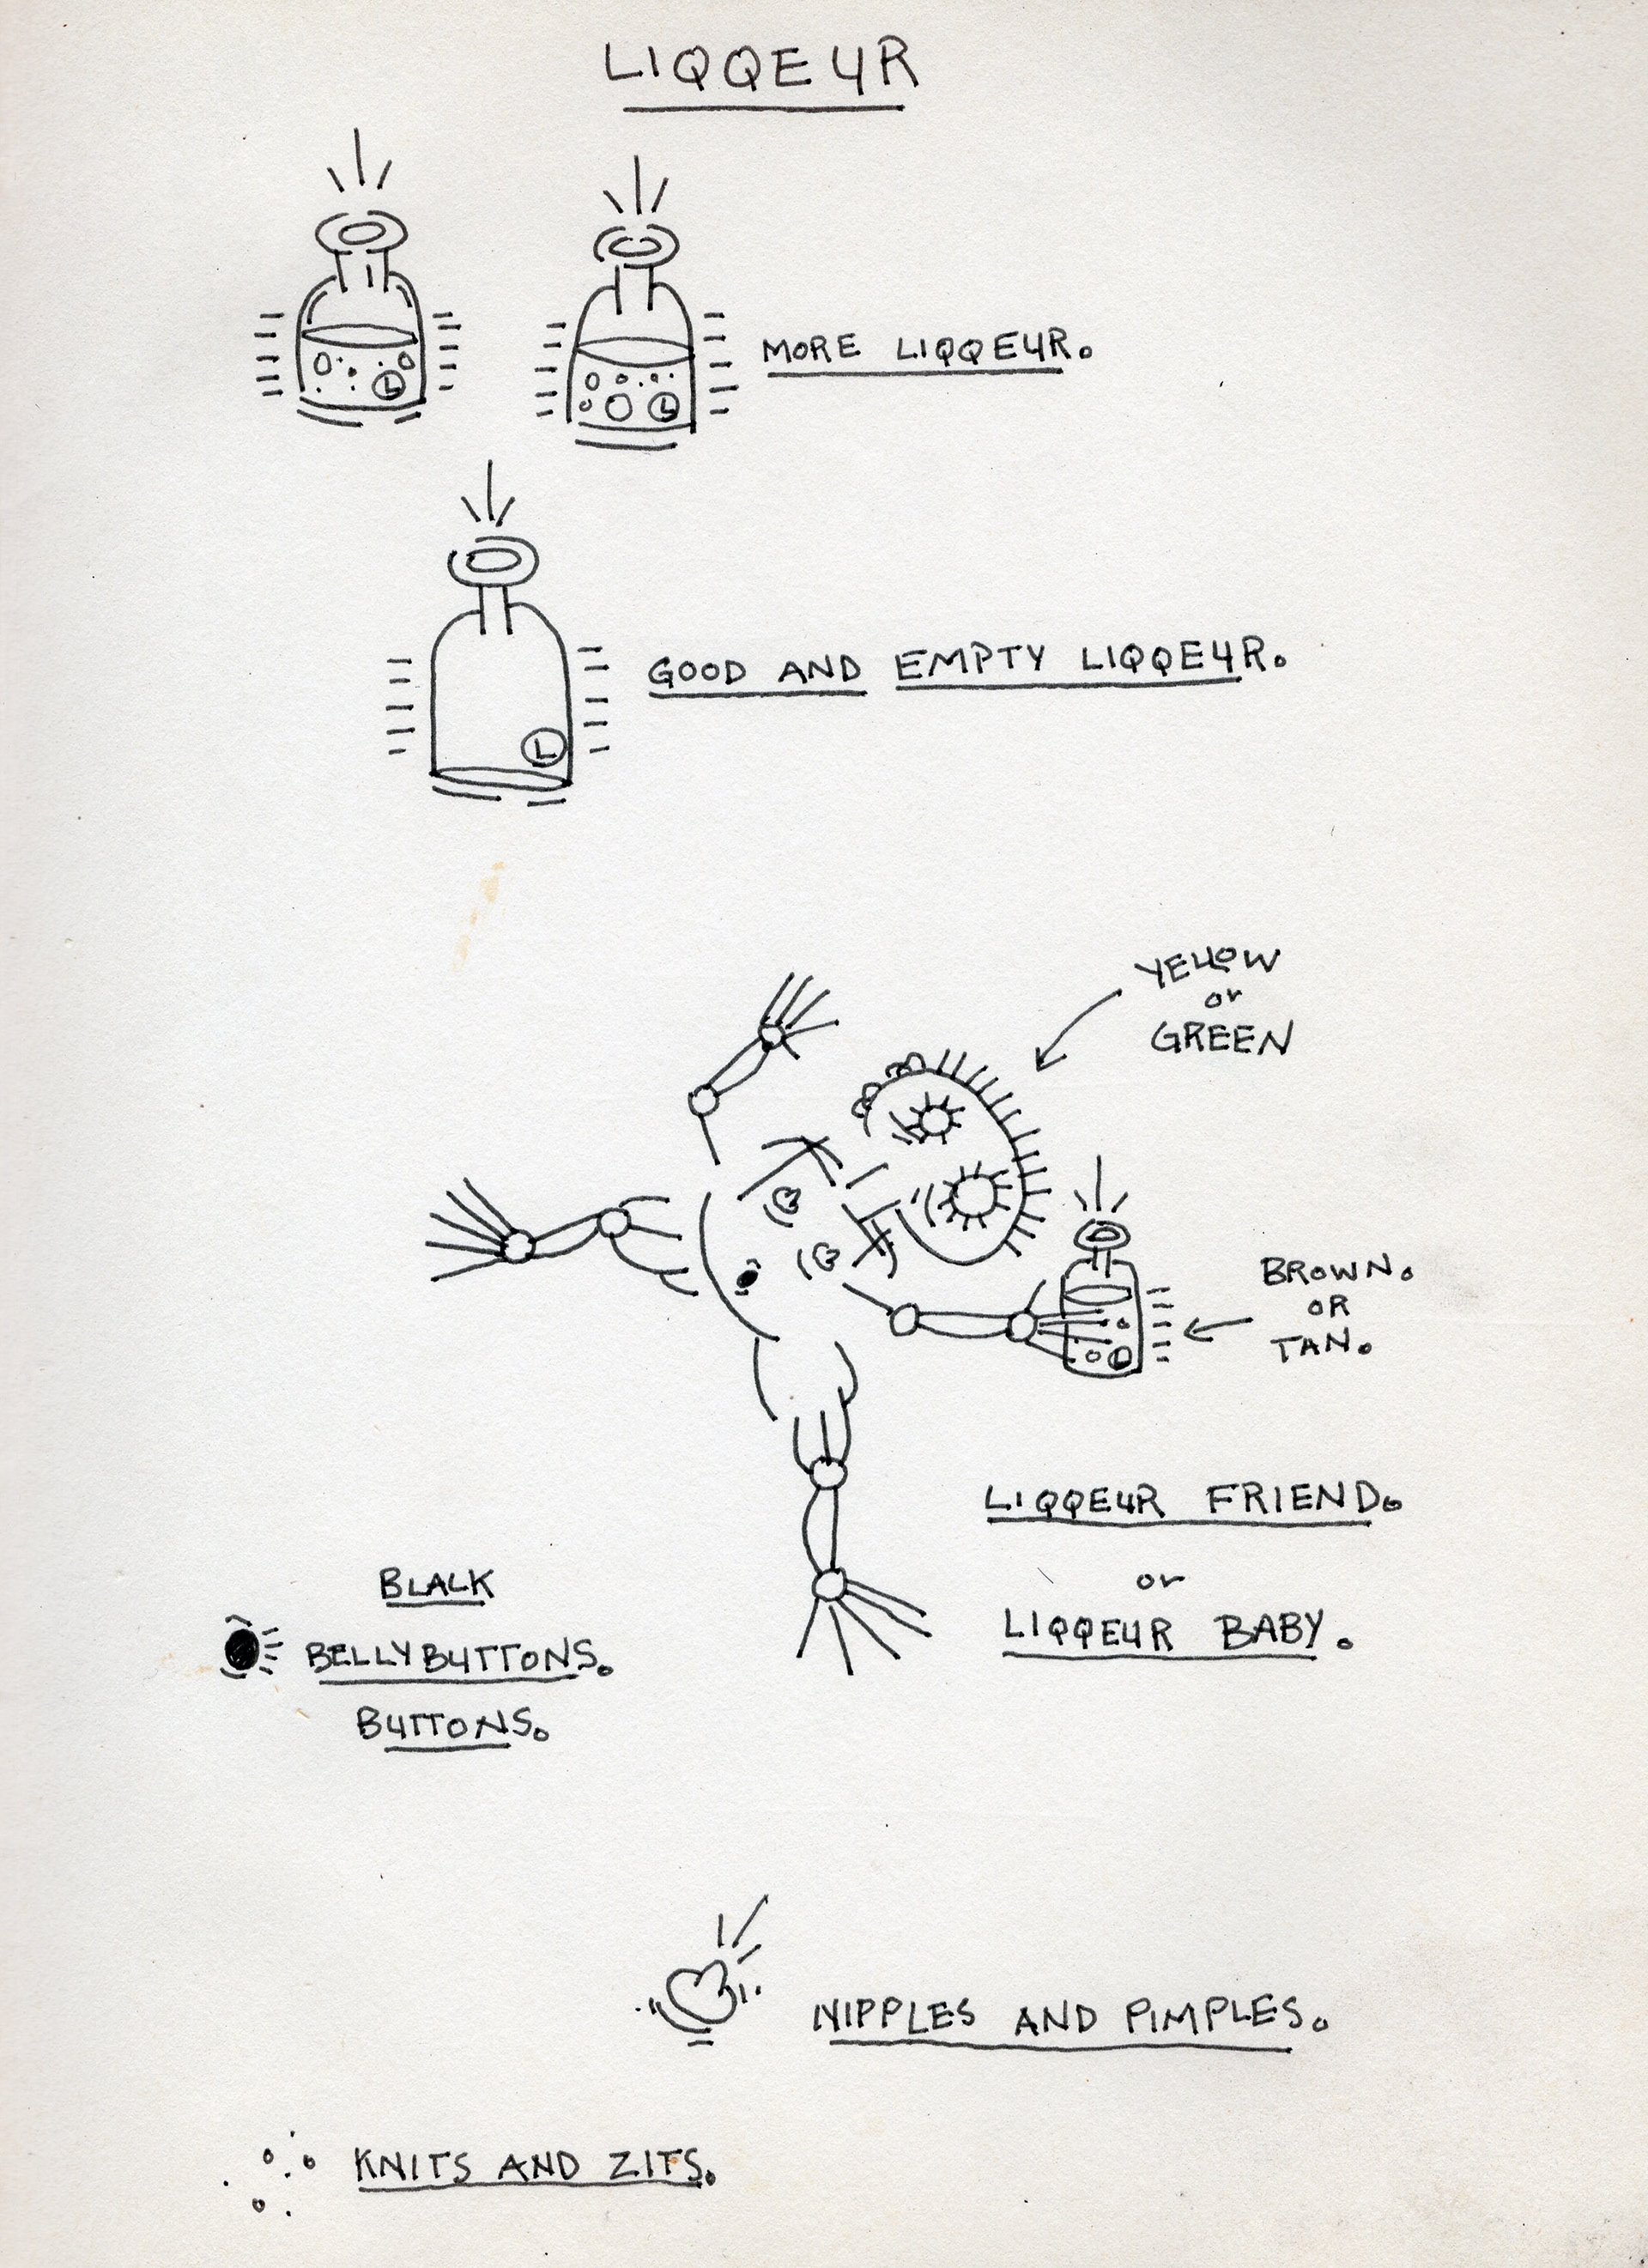 LIQQEUR
L
L
MORE LIQQEUR.
GOOD AND EMPTY LIQQEUR.
L
YELLOW
or
GREEN
BROWN.
OR
TAN.
L
LIQQEUR FRIEND.
or
LIQQEUR BABY.
BLACK
BELLYBUTTONS.
BUTTONS.
NIPPLES AND PIMPLES.
KNITS AND ZITS.